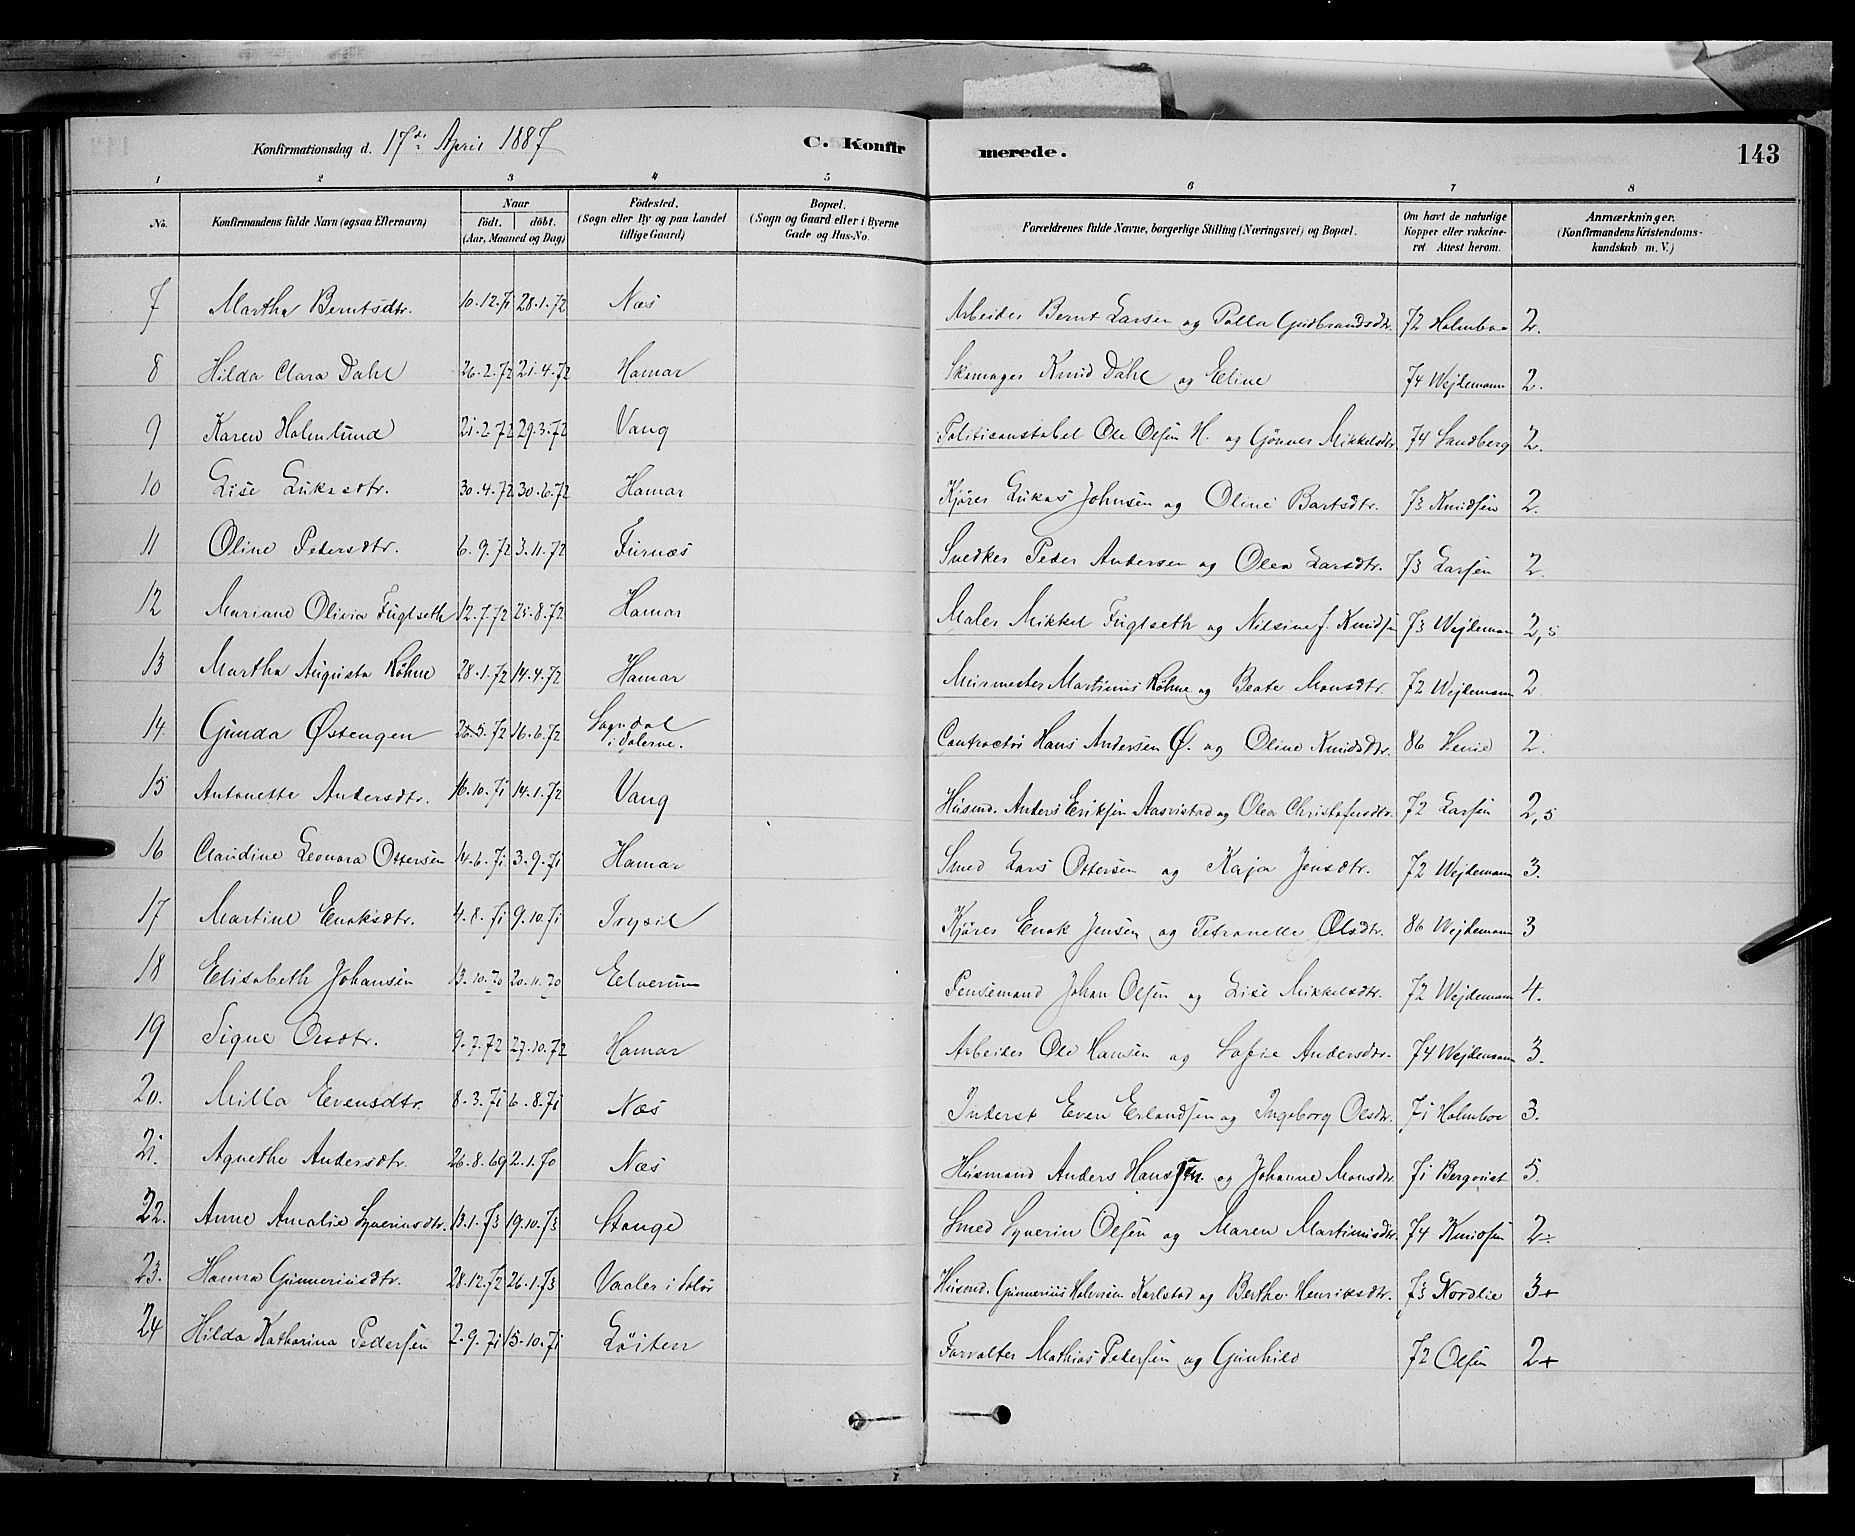 Konfirmationsdag d. 17de April 1887 C. Konfirmerede. 143
1 2 3 4 5 6 7 8
No. Konfirmandens fulde Navn (ogsaa Efternavn) Naar født. døbt. (Aar, Maaned og Dag) Fødested. (Sogn eller By og paa Landet tillige Gaard) Bopæl. (Sogn og Gaard eller i Byerne Gade og Hus-No. Forældrenes fulde Navne, borgerlige Stilling (Næringsvei) og Bopæl. Om havt de naturlige Kopper eller vakcineret. Attest herom. Anmærkninger. (Konfirmandens Kristendomskundskab m. V.)
7 Martha Berntsdtr. 10.12.71 28.1.72 Næs Arbeider Bernt Larsen og Polla Gudbrandsdtr. 72 Holmboe 2.
8 Hilda Clara Dahl 26.2.72 21.4.72 Hamar Skomager Knud Dahl og Eline 74 Wejdemann 2.
9 Karen Holmlund 21.2.72 29.3.72 Vang Politiconstabel Ole Olsen H. og Gønner Mikkelsdtr. 74 Sandberg 2.
10 Lise Lukasdtr. 30.4.72 30.6.72 Hamar Kjører Lukas Johnsen og Oline Bartsdtr. 73 Knudsen 2.
11 Oline Pedersdtr. 6.9.72 3.11.72 Furnæs Snedker Peder Andersen og Olea Larsdtr. 73 Larsen 2.
12 Mariane Olivia Fuglseth 12.7.72 25.8.72 Hamar Maler Mikkel Fuglseth og Nilsine f. Knudsen 73 Wejdemann 2,5
13 Martha Augusta Røhne 28.1.72 14.4.72 Hamar Murmester Martinius Røhne og Beate Monsdtr. 72 Wejdemann 2
14 Gunda Østengen 26.5.72 16.6.72 Sogndal i Dalerne. Contractør Hans Andersen Ø. og Oline Knudsdtr. 86 Henie 2.
15 Antonette Andersdtr. 16.10.71 14.1.72 Vang Husmd. Anders Eriksen Aasvistad og Olea Christofersdtr. 72 Larsen 2,5
16 Claudine Leonora Ottersen 14.6.71 3.9.71 Hamar Smed Lars Ottersen og Kaja Jensdtr. 72 Wejdemann 3.
17 Martine Enoksdtr. 4.8.71 9.10.71 Trysil Kjører Enok Jensen og Petronelle Olsdtr. 86 Wejdemann 3
18 Elisabeth Johansen 13.10.70 20.11.70 Elverum Pensemand Johan Olsen og Lise Mikkelsdtr. 72 Wejdemann 4.
19 Signe Olsdtr. 9.7.72 27.10.72 Hamar Arbeider Ole Hansen og Sofie Andersdtr. 74 Wejdemann 3.
20. Milla Evensdtr. 8.3.71 6.8.71 Næs Inderst Even Erlandsen og Ingeborg Olsdtr. 71 Holmboe 3.
21. Agnethe Andersdtr. 26.8.69 2.1.70 Næs Husmand Anders Hanssen. og Johanne Monsdtr. 71 Bergqvist 5.
22. Anne Amalie Syverinsdtr. 13.1.73 19.10.73 Stange Smed Syverin Olsen og Maren Martinusdtr. 74 Knudsen 2÷
23. Hanna Gunneriusdtr. 28.12.72 26.1.73 Vaaler i Solør Husmd. Gunnerius Halvorsen Karlstad og Berthe Henriksdtr. 73 Nordlie 3+
24 Hilda Katharina Pedersen 2.9.71 15.10.71 Løiten Forvalter Mathias Pedersen og Gunhild 72 Olsen 2+